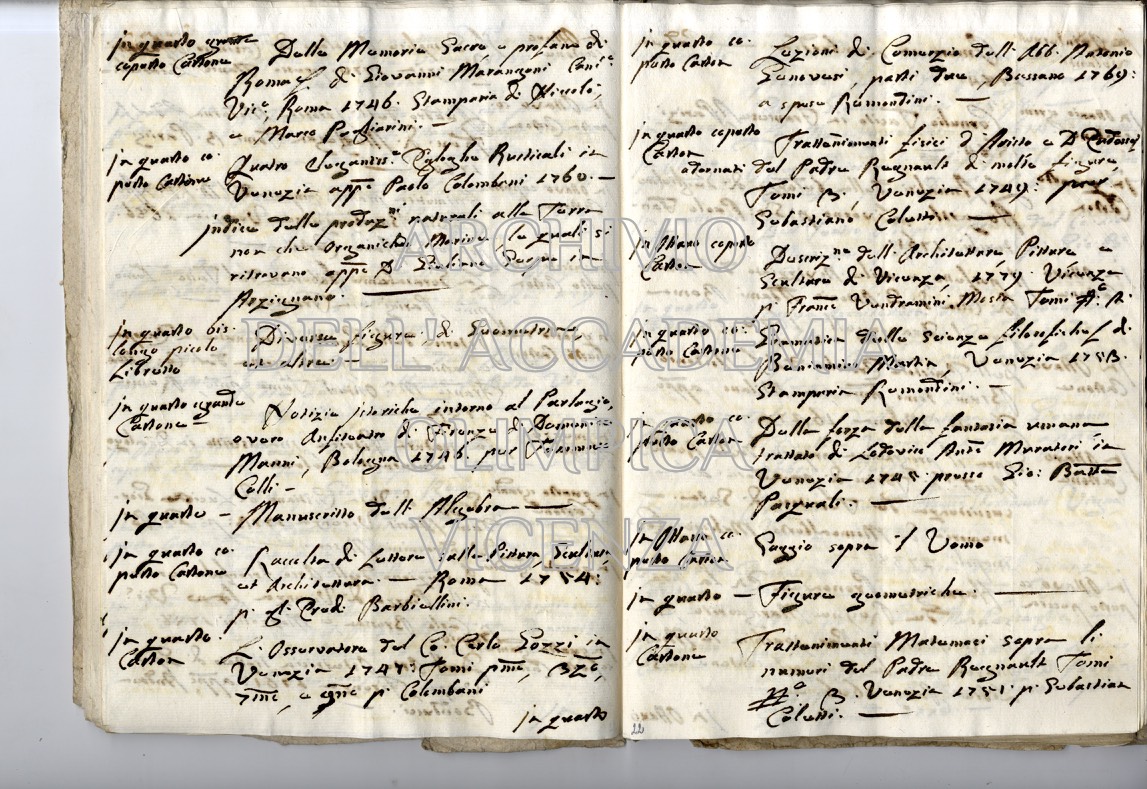 in quarto grande
coperto Cartone
Delle Memorie Sacre, e profane di
Roma di Giovanni Marangoni Cani.e
Vic.o, Roma 1746. Stamparia di Niccolò,
e Marco Pagliarini. —
in quarto co-
perto Cartone
Quatro Elegantiss.e Egloghe Rusticali in
Venezia app.e Paolo Colombani 1760. —
indice delle produz.ni naturali alle Terra
non che Organiche Marine, le quali si
ritrovano app.e D.
Arzignano. —
in quarto bis-
longo picolo
Libretto
Diverse figure di Geometria,
ed altre. —
in quarto grande
Cartone —
Notizie istoriche intorno al Parlagio,
overo Anfiteatro di Firenze di Domenico
Manni, Bologna 1746. per Tomma-
Colli —
in quarto — Manuscritto dell'Algebra —
in quarto co-
perto Cartone
Raccolta di Lettere sulla Pittura, Scultura,
et Architettura. — Roma 1754:
p. gl'Eredi Barbiellini.
in quarto
Carton
L'Osservatore del Co: Carlo Gozzi in
Venezia Tomi
e p. Colombani
in quarto
in quarto co-
perto Carton
Lezioni di Comerzio dell'Abb. Antonio
Genovesi, parti due, Bassano 1769:
a spese Remondini. —
in quarto coperto
Carton
Trattenimenti fisici d'Aristo e D'Eudosso
adornati del Padre Regnault di molte figure,
Tomi 3. Venezia 1749: per
Sebastiano Coletti —
in Ottavo coperto
Carton
Descriz.ne dell'Architettura, Pittura e
Scultura di Vicenza, 1779. Vicenza
p. Franc.o Vendramini Mosca Tomi
in quarto co-
perto Cartone
Gramatica delle Scienze filosofiche di
Beniamino Martin, Venezia 1753.
Stamparia Remondini. —
in quarto co-
perto Carton
Della forza della fantasia umana
trattato di Lodovico Ant.o Muratori in
Venezia 1745. presso Gio: Batta
Pasquali. —
in Ottavo co-
perto Carton
Saggio sopra l'Uomo
in quarto — Figure geometriche. —
in quarto
Cartone
Trattenimenti Matemaci sopra li
numeri del Padre Regnault Tomi
3. Venezia 1751. p. Sebastian
Coletti. —
22
ARCHIVIO
DELL'ACCADEMIA
OLIMPICA
VICENZA